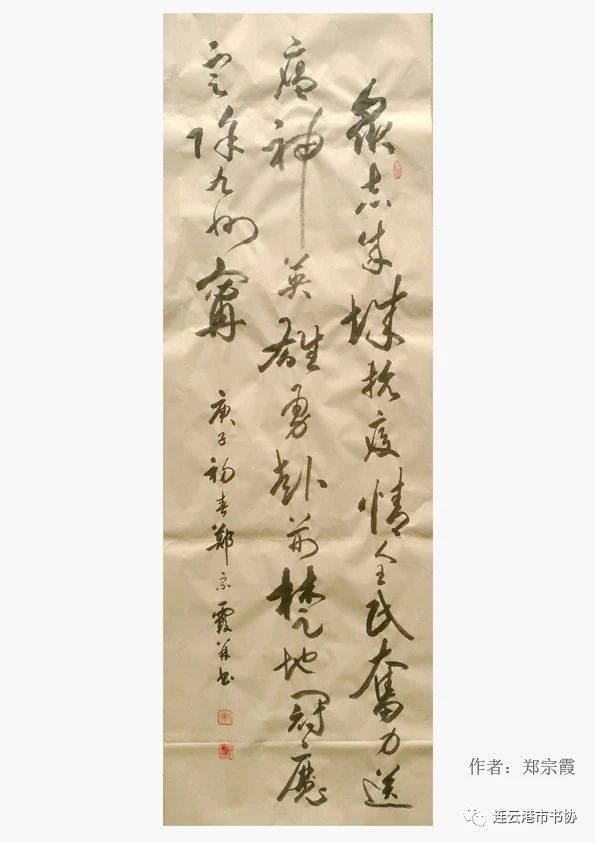 眾志成城抗疫情全民奮力送
瘟神英雄勇赴荊楚地冠魔
定除九州寧
庚子初春鄭宗霞并书
作者：郑宗霞
连云港市书协